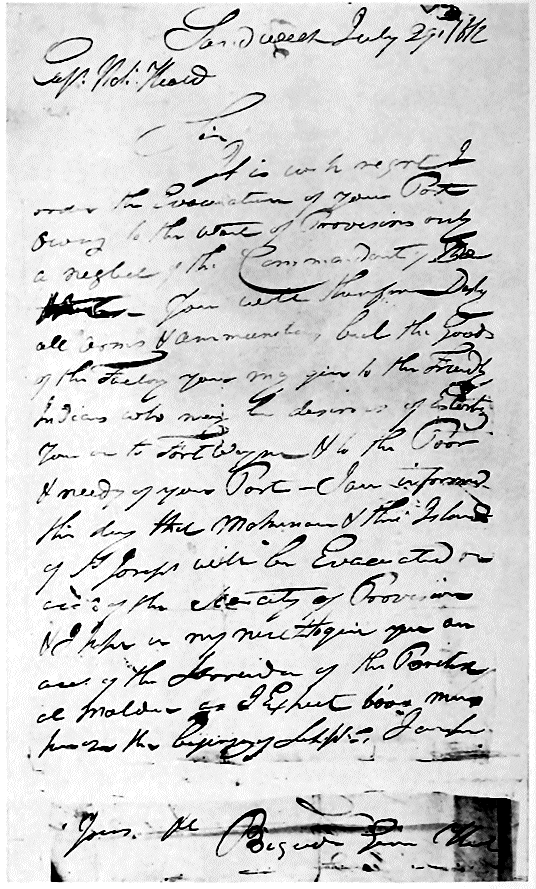 Sandwich July 29. 1812
Capt. Nat. Heald
Sir
It is with regret I
order the Evacuation of your Post
owing to the want of Provisions only
a neglect of the Commandant of
You will therefore Destroy
all arms & ammunition, but the Goods
of the Factory you may give to the Friendly
Indians who may be desirous of Escorting
You on to Fort Wayne & to the Poor
& needy of your Post – I am informed
this day that Makinac & the Island
of St Joseph will be Evacuated on
acct of the scarcity of Provision
& I hope in my next to give you an
acct of the Surrender of the British
at Malden as I Expect 600 men
here by the beginng of Sept I am Sir
Yours &c
Brigadier Genl Hull